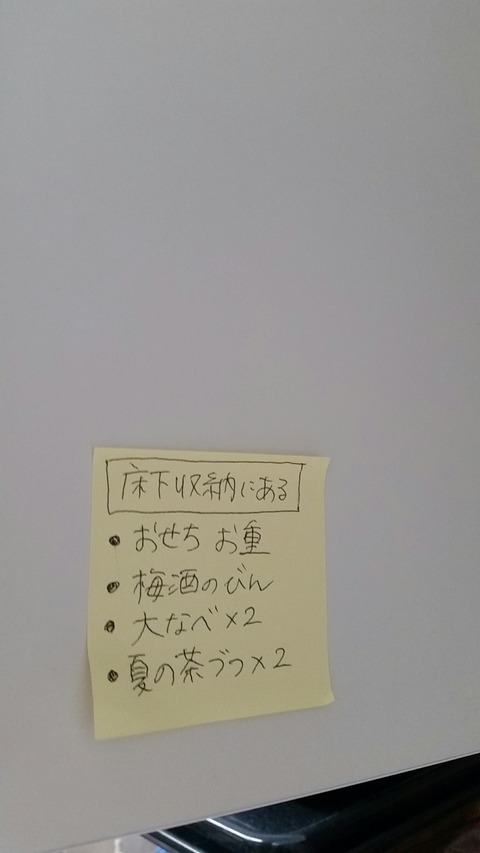 床下収納にある
• おせち お重
• 梅酒のびん
• 大なべ×2
• 夏の茶づつ×2